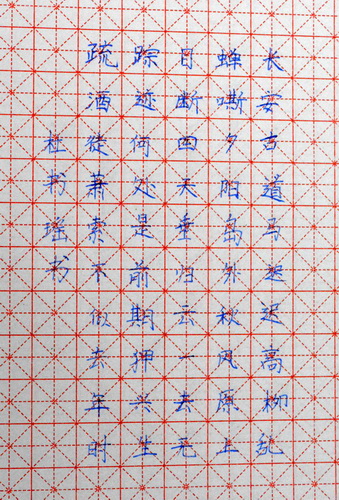 长安古道马迟迟高柳乱
蝉嘶夕阳岛外秋风原上
目断四天垂归云一去无
踪迹何处是前期狎兴生
疏酒徒萧索不似去年时
杜书瑶书